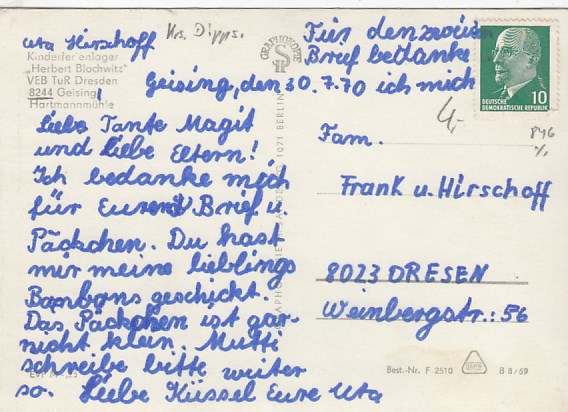 Uta Hirschoff
Krs. Dipps.
Kinderferienlager
"Herbert Blochwitz"
VEB TuR Dresden
8244 Geising
Hartmannmühle
GRAPHOKOPIE
Für den zweiten
Brief bedanke
ich mich
Geising, den 30.7.70
Liebe Tante Magit
und liebe Eltern!
Ich bedanke mich
für Euren Brief u.
Päckchen. Du hast
mir meine lieblings
Bombons geschickt.
Das Päckchen ist gar
nicht klein. Mutti
schreibe bitte weiter
so. Liebe Küssel Eure Uta
1071 BERLIN
DEUTSCHE
DEMOKRATISCHE REPUBLIK
10
4,-
846
Fam.
Frank u. Hirschoff
8023 DRESEN
Weinbergstr.: 56
Best.-Nr. F 2510
B 8/69